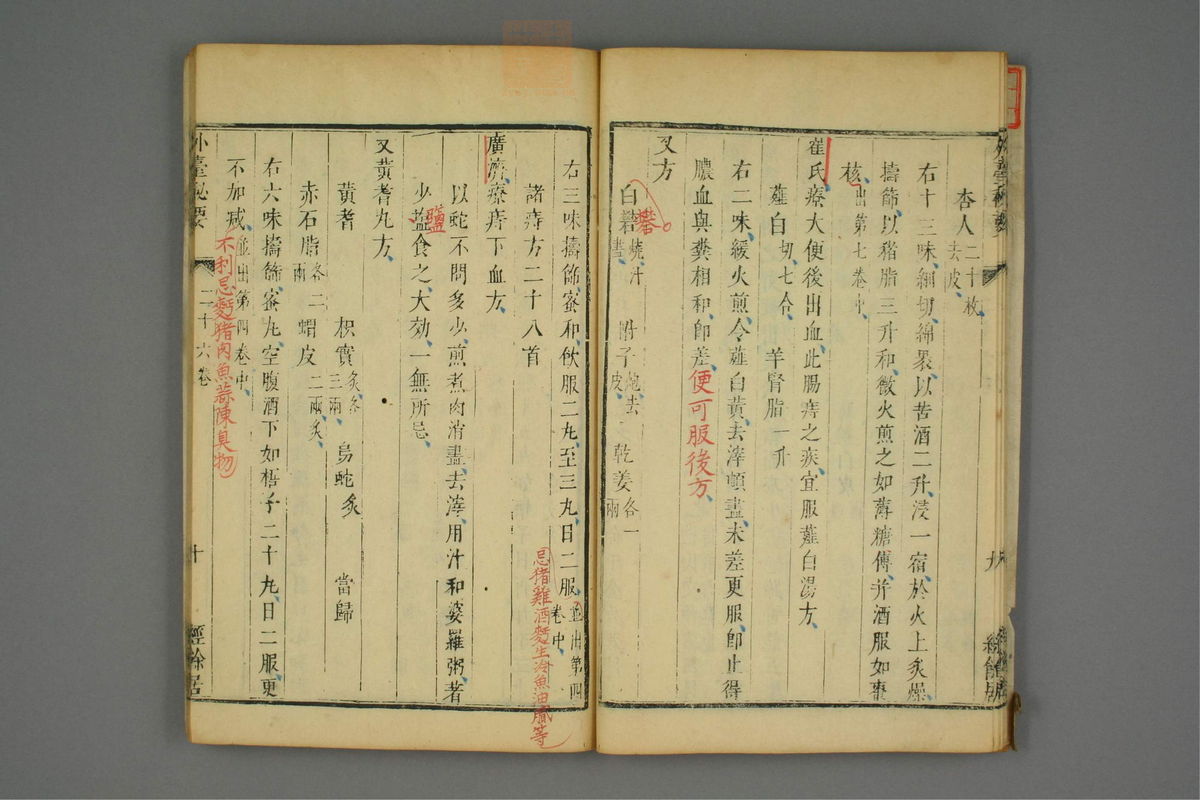 杏人二十枚去皮
右十三味細切綿褁以苦酒二升浸一宿於火上炙燥
擣篩以豬脂三升和微火煎之如薄糖傅并酒服如棗
核出第七卷中
崔氏療大便後出血此腸痔之疾宜服薤白湯方
薤白切七合 羊腎脂一升
右二味緩火煎令薤白黃去滓頓盡未差更服卽止得
膿血與糞相和卽差便可服後方
又方
白礬燒汁盡 附子炮去皮 乾姜各一兩
礬
右三味擣篩蜜和飲服二丸至三丸日二服並出第四卷中
忌猪雞酒麫生冷魚油膩等
諸痔方二十八首
廣濟療痔下血方
以蛇不問多少煎煮肉消盡去滓用汁和婆羅粥著
少鹽食之大効一無所忌
鹽
又黃耆丸方
黃耆 枳實炙各三兩 烏蛇炙 當歸
赤石脂各二兩 蝟皮二兩炙
右六味擣篩蜜丸空腹酒下如梧子二十丸日二服更
不加減並出第四卷中
不利忌麫猪肉魚蒜陳臭物
外臺秘要 二十六卷 十 經餘居
九